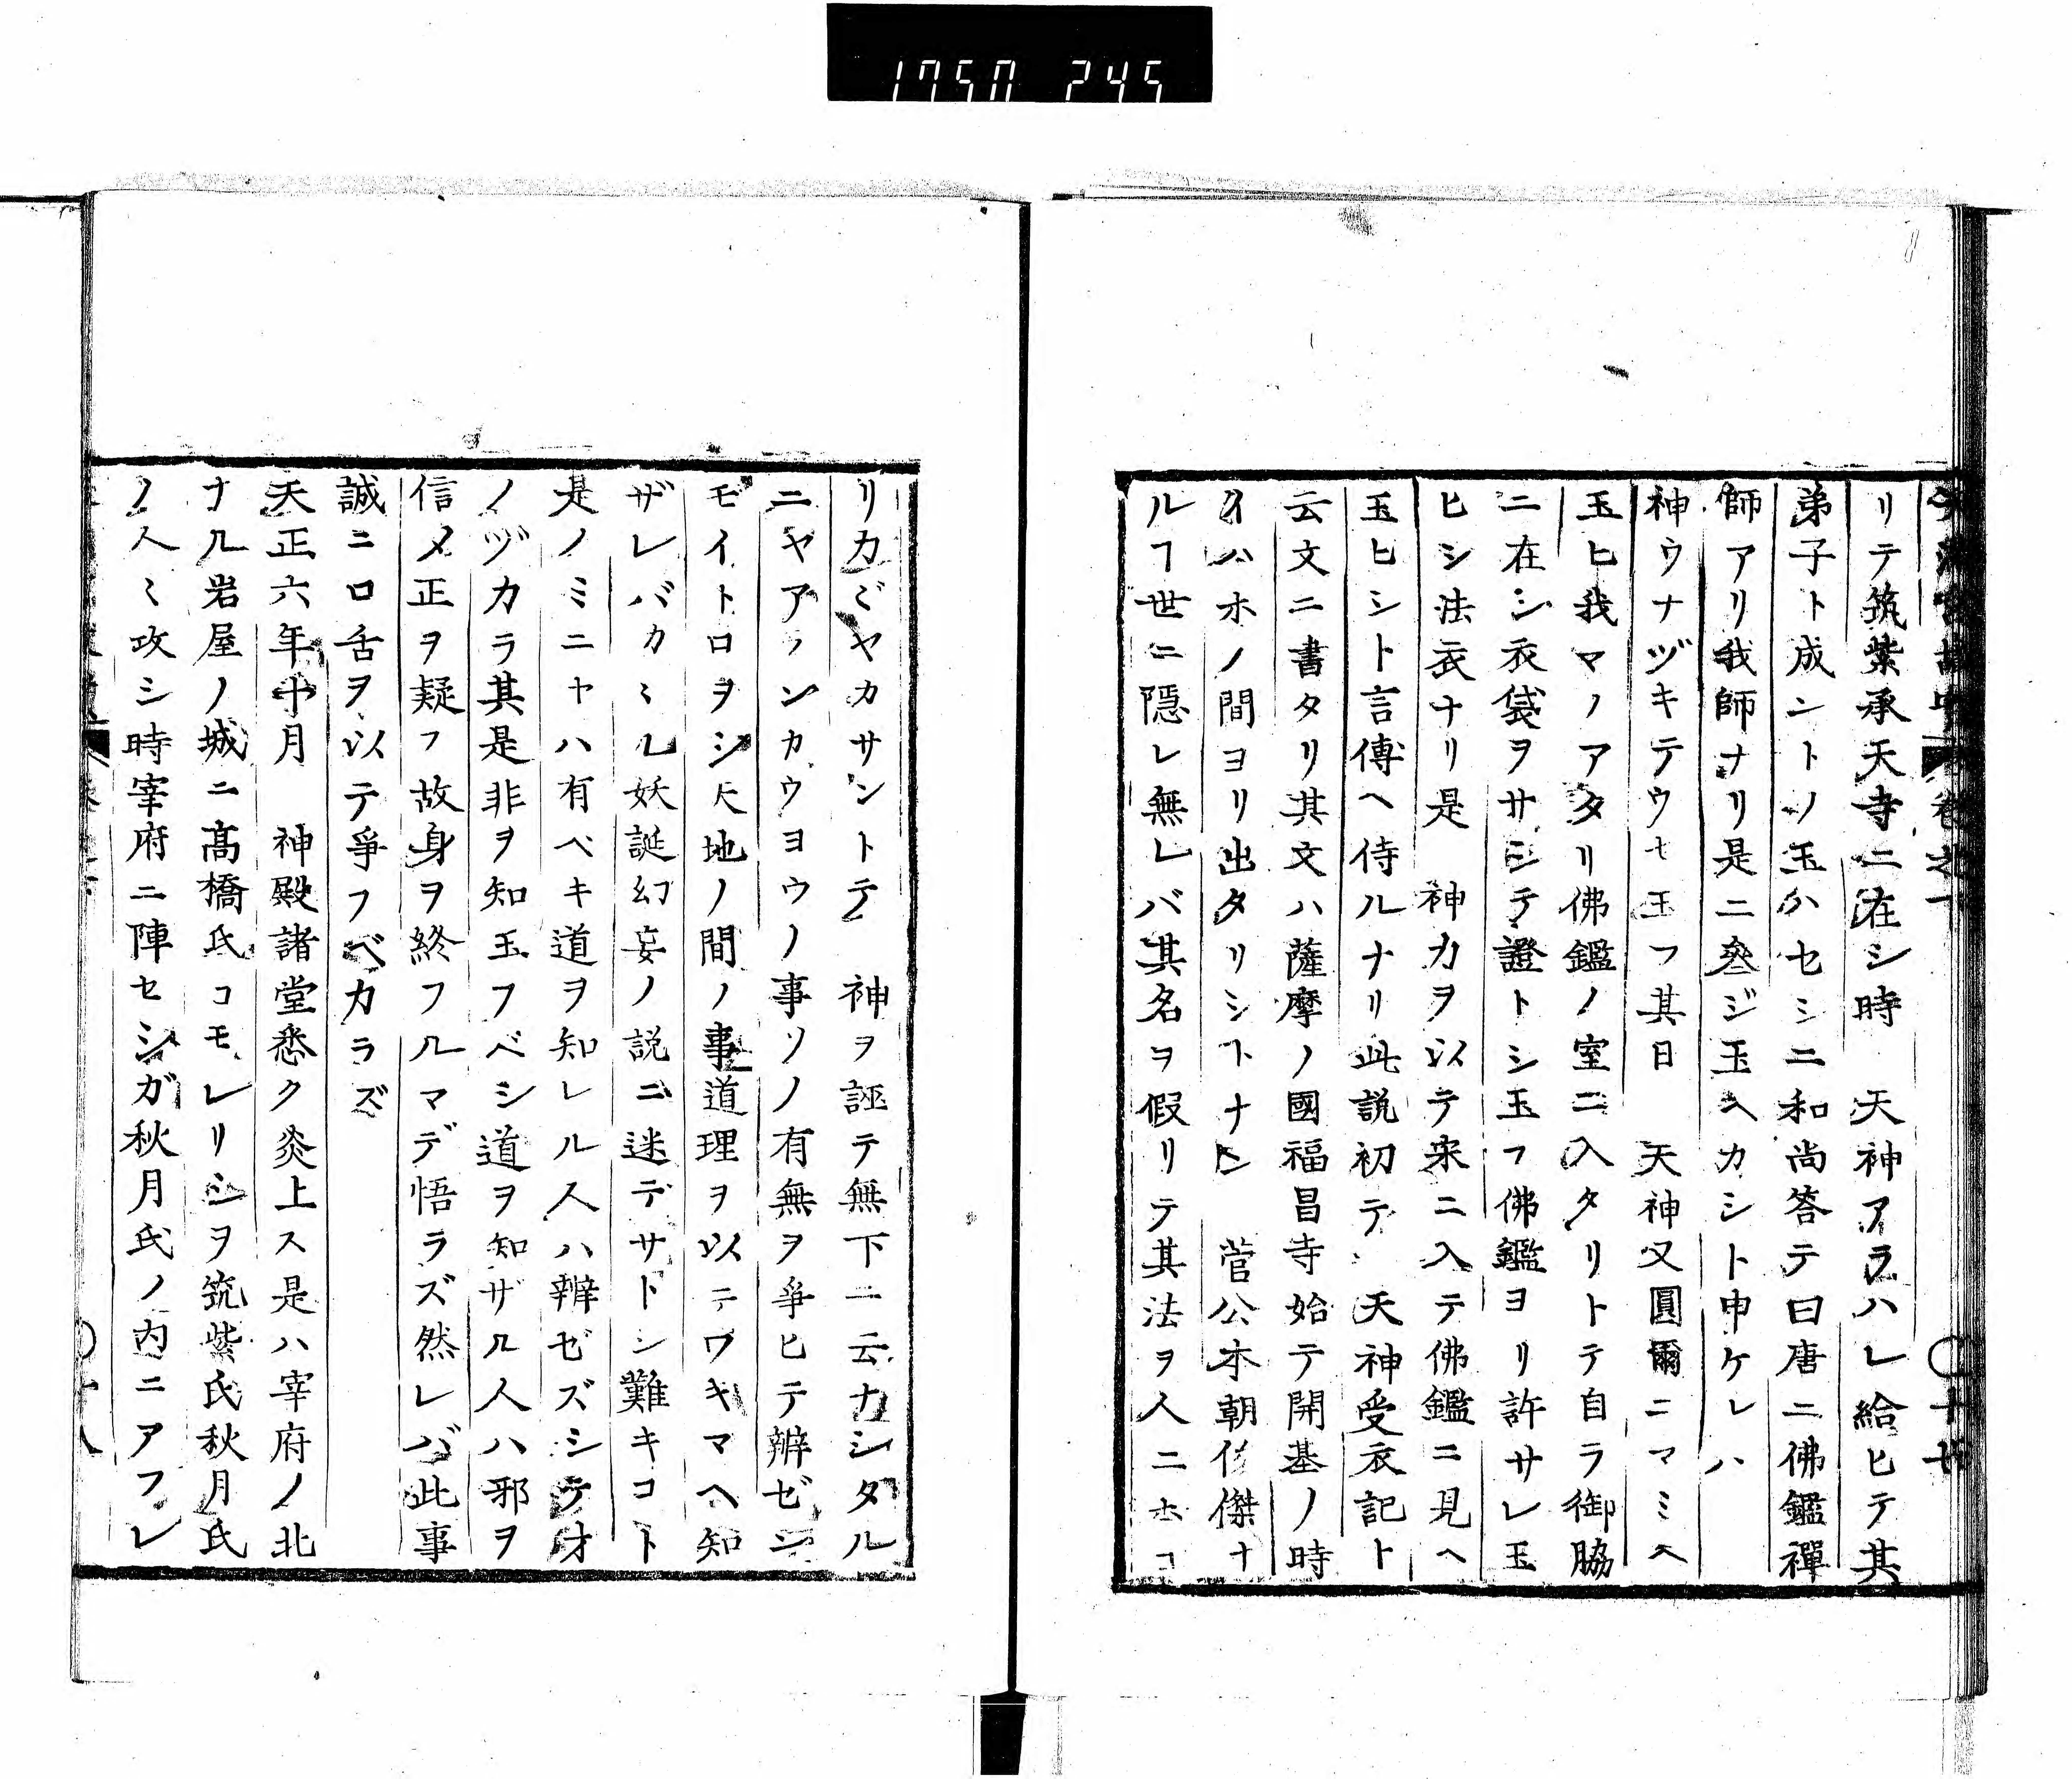 1750 245
リテ筑紫承天寺ニ在シ時　天神アラハレ給ヒテ其
弟子ト成ントノ玉ハセシニ和尚答テ曰唐ニ佛鑑禪
師アリ我師ナリ是ニ叅ジ玉ヘカシト申ケレハ
神ウナヅキテウセ玉フ其日　天神又圓爾ニマミヘ
玉ヒ我マノアタリ佛鑑ノ室ニ入タリトテ自ラ御脇
ニ在シ衣袋ヲサシテ證トシ玉フ佛鑑ヨリ許サレ玉
ヒシ法衣ナリ是　神力ヲ以テ宋ニ入テ佛鑑ニ見ヘ
玉ヒシト言傳ヘ侍ルナリ此説初テ　天神受衣記ト
云文ニ書タリ其文ハ薩摩ノ國福昌寺始テ開基ノ時
イハホノ間ヨリ出タリシヿナヒ　菅公本朝ノ傑ナ
ルヿ世ニ隠レ無レバ其名ヲ假リテ其法ヲ人ニホコ
リカヾヤカサントテ　神ヲ誣テ無下ニ云ナシタル
ニヤアランカウヨウノ事ソノ有無ヲ爭ヒテ辨ゼン
モイトロヲシ天地ノ間ノ事道理ヲ以テワキマヘ知
ザレバカヽル妖誕幻妄ノ説ニ迷デサトシ難キコト
是ノミニヤハ有ベキ道ヲ知レル人ハ辨ゼズシテオ
ノヅカラ其是非ヲ知玉フベシ道ヲ知ザル人ハ邪ヲ
信メ正ヲ疑フ故身ヲ終フルマデ悟ラズ然レバ此事
誠ニ口舌ヲ以テ爭フベカラズ
天正六年十月　神殿諸堂悉ク炎上ス是ハ宰府ノ北
ナル岩屋ノ城ニ高橋氏コモレリシヲ筑紫氏秋月氏
ノ人〻攻シ時宰府ニ陣セシガ秋月氏ノ内ニアフレ